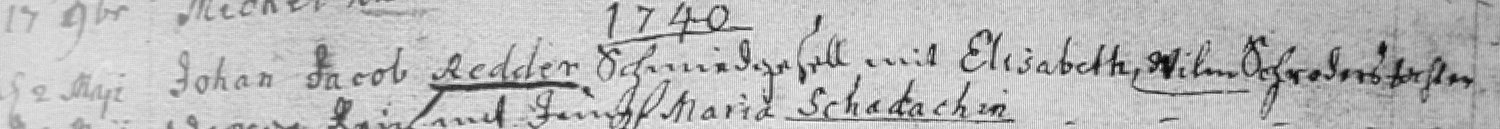 17 9br Michel
1740
2 Maji Johan Jacob Redder Schmiedgesell mit Elisabeth, Wilm Schroders tochter
mit Jungf Maria Schadachin